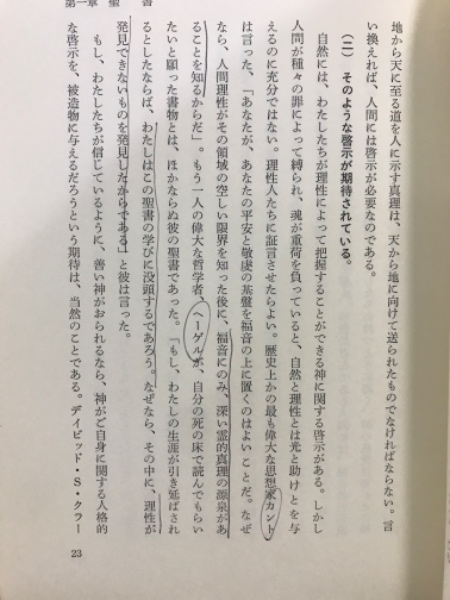 第一章　聖　　書
地から天に至る道を人に示す真理は、天から地に向けて送られたものでなければならない。言
い換えれば、人間には啓示が必要なのである。
（二）　そのような啓示が期待されている。
自然には、わたしたちが理性によって把握することができる神に関する啓示がある。しかし
人間が種々の罪によって縛られ、魂が重荷を負っていると、自然と理性とは光と助けとを与
えるのに充分ではない。理性人たちに証言させたらよい。歴史上かの最も偉大な思想家カント
は言った。「あなたが、あなたの平安と敬虔の基盤を福音の上に置くのはよいことだ。なぜ
なら、人間理性がその領域の空しい限界を知った後に、福音にのみ、深い霊的真理の源泉があ
ることを知るからだ」。もう一人の偉大な哲学者、ヘーゲルが、自分の死の床で読んでもらい
たいと願った書物とは、ほかならぬ彼の聖書であった。「もし、わたしの生涯が引き延ばされ
るとしたならば、わたしはこの聖書の学びに没頭するであろう。なぜなら、その中に、理性が
発見できないものを発見したからである」と彼は言った。
もし、わたしたちが信じているように、善い神がおられるなら、神がご自身に関する人格的
な啓示を、被造物に与えるだろうという期待は、当然のことである。デイビッド・S・クラー
23